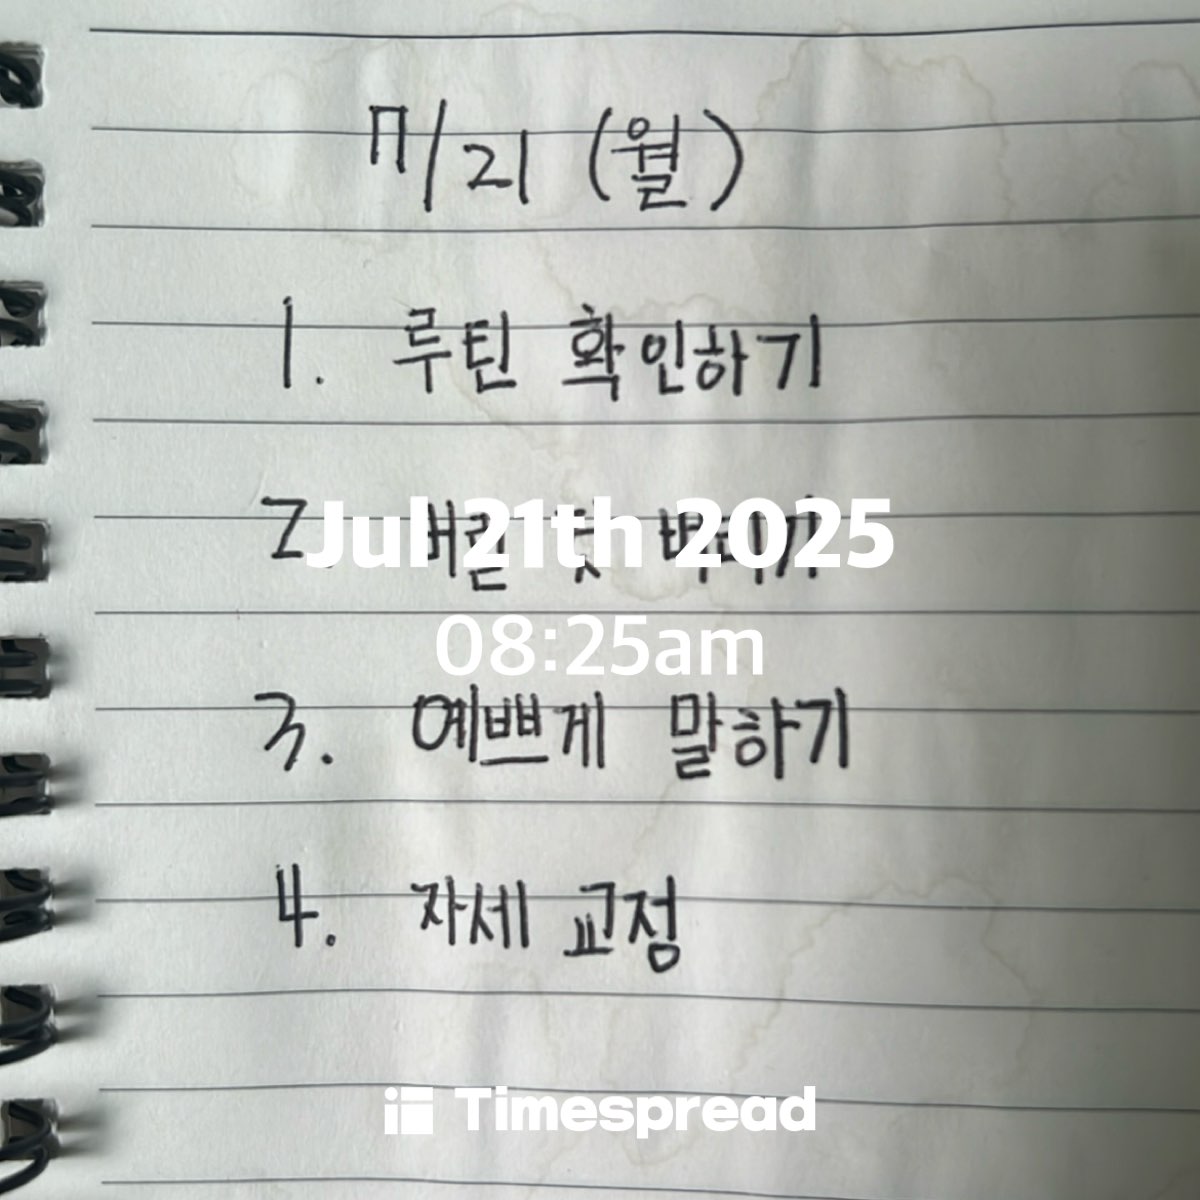 7/21 (월)
1. 루틴 확인하기
2.
Jul 21th 2025
08:25am
3. 예쁘게 말하기
4. 자세 교정
Timespread